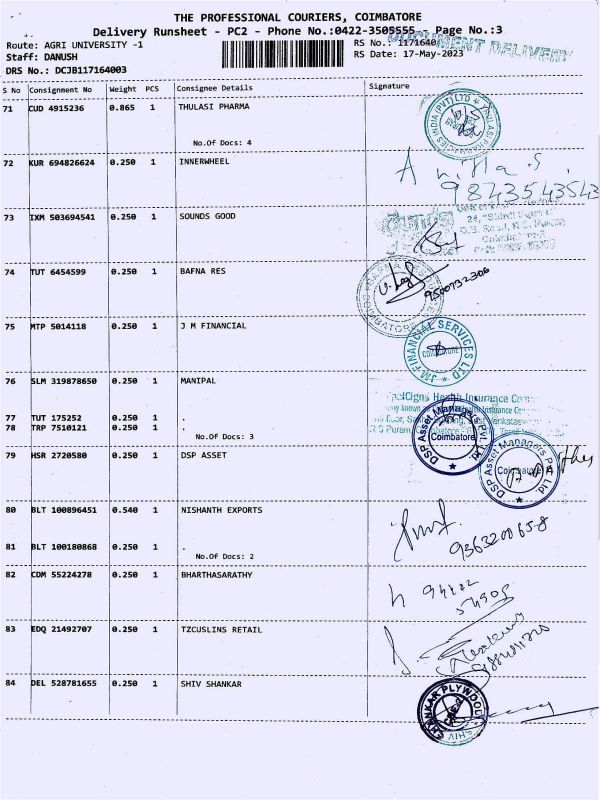 THE PROFESSIONAL COURIERS, COIMBATORE
Delivery Runsheet - PC2 - Phone No.:0422-3505555- Page No.:3
Route: AGRI UNIVERSITY -1
RS No.: 1171640
DOCUMENT DELIVERY
Staff: DANUSH
RS Date: 17-May-2023
DRS No.: DCJB117164003
S No Consignment No Weight PCS Consignee Details Signature
71 CUD 4915236 0.865 1 THULASI PHARMA
No.Of Docs: 4
72 KUR 694826624 0.250 1 INNERWHEEL
98435 43543
73 IXM 503694541 0.250 1 SOUNDS GOOD
74 TUT 6454599 0.250 1 BAFNA RES
9500732306
COIMBATORE
75 MTP 5014118 0.250 1 J M FINANCIAL
JM FINANCIAL SERVICES LTD
COIMBATORE
76 SLM 319878650 0.250 1 MANIPAL
Health Insurance Com
77 TUT 175252 0.250 1 .
78 TRP 7510121 0.250 1 .
No.Of Docs: 3
DSP Asset Managers Pvt. Ltd.
Coimbatore
79 HSR 2720580 0.250 1 DSP ASSET
DSP Asset Managers Pvt. Ltd.
80 BLT 100896451 0.540 1 NISHANTH EXPORTS
9363200658
81 BLT 100180868 0.250 1 .
No.Of Docs: 2
82 CDM 55224278 0.250 1 BHARTHASARATHY
83 EDQ 21492707 0.250 1 TZCUSLINS RETAIL
84 DEL 528781655 0.250 1 SHIV SHANKAR
SHIV SHANKAR PLYWOOD